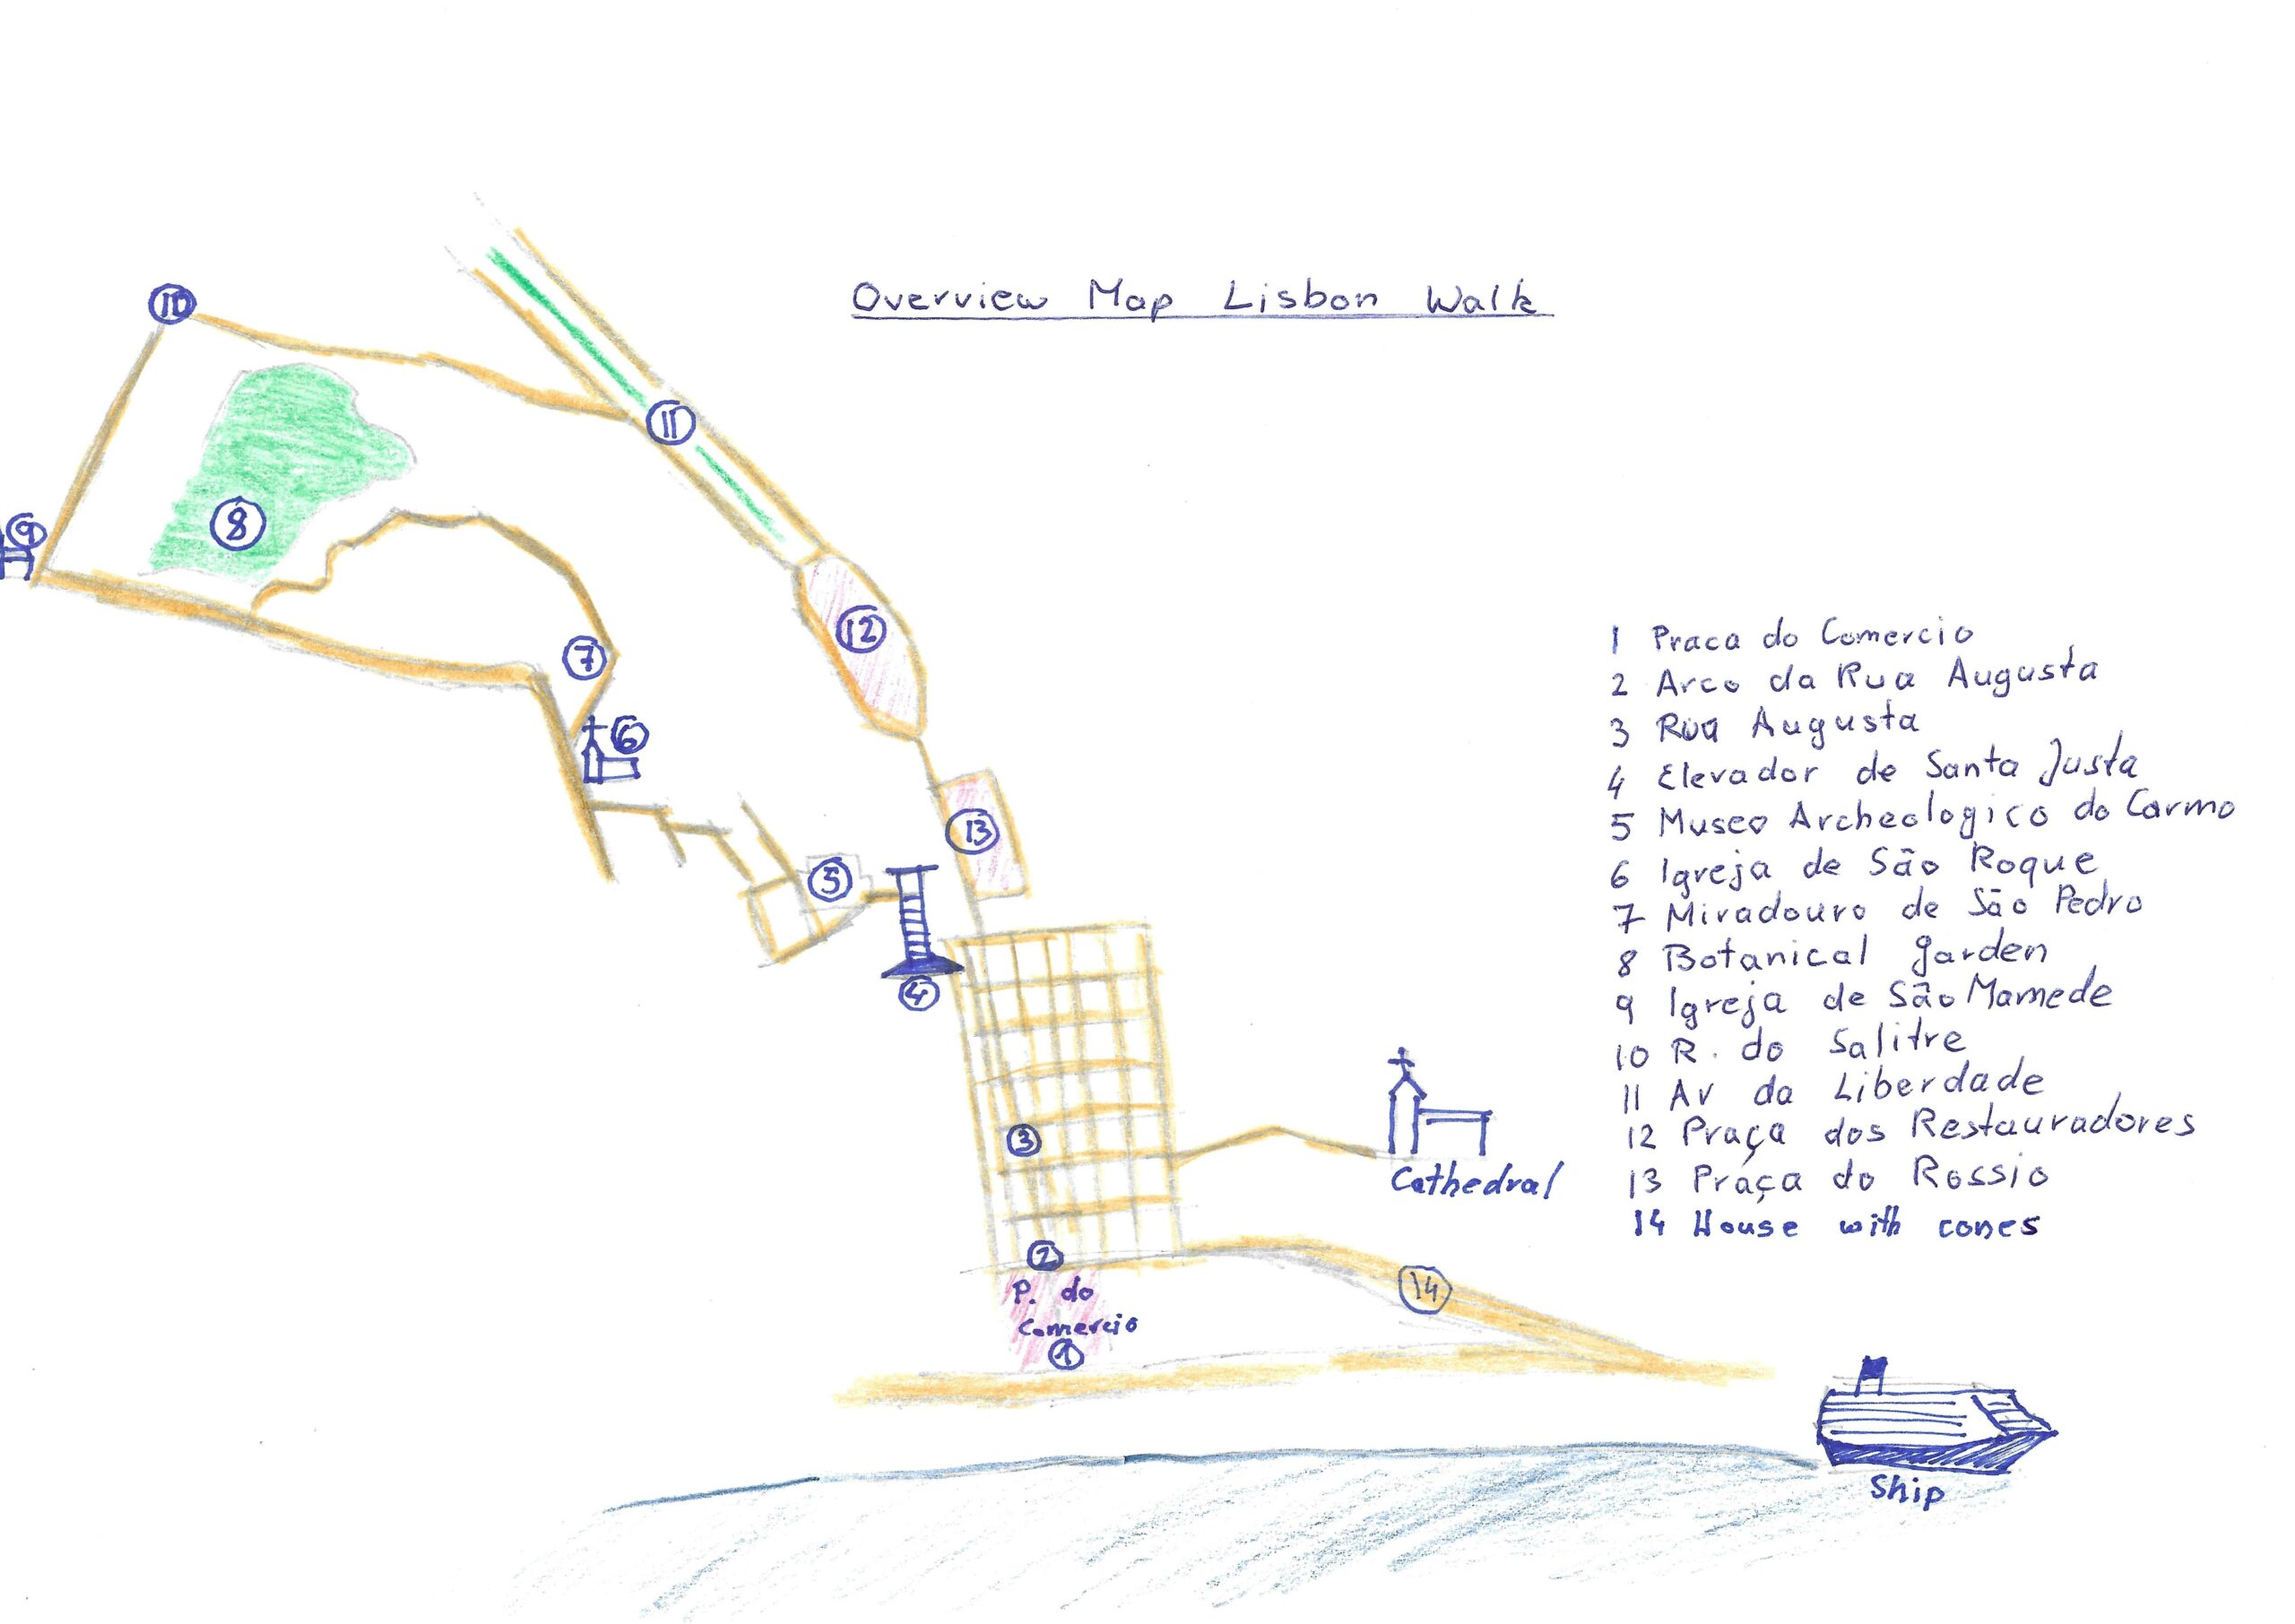 Overview Map Lisbon Walk
10
11
8
9
12
7
6
13
5
4
3
Cathedral
2
P. do
Comercio
1
14
Ship
1 Praca do Comercio
2 Arco da Rua Augusta
3 Rua Augusta
4 Elevador de Santa Justa
5 Museo Archeologico do Carmo
6 Igreja de São Roque
7 Miradouro de São Pedro
8 Botanical garden
9 Igreja de São Mamede
10 R. do Salitre
11 Av da Liberdade
12 Praça dos Restauradores
13 Praça do Rossio
14 House with cones